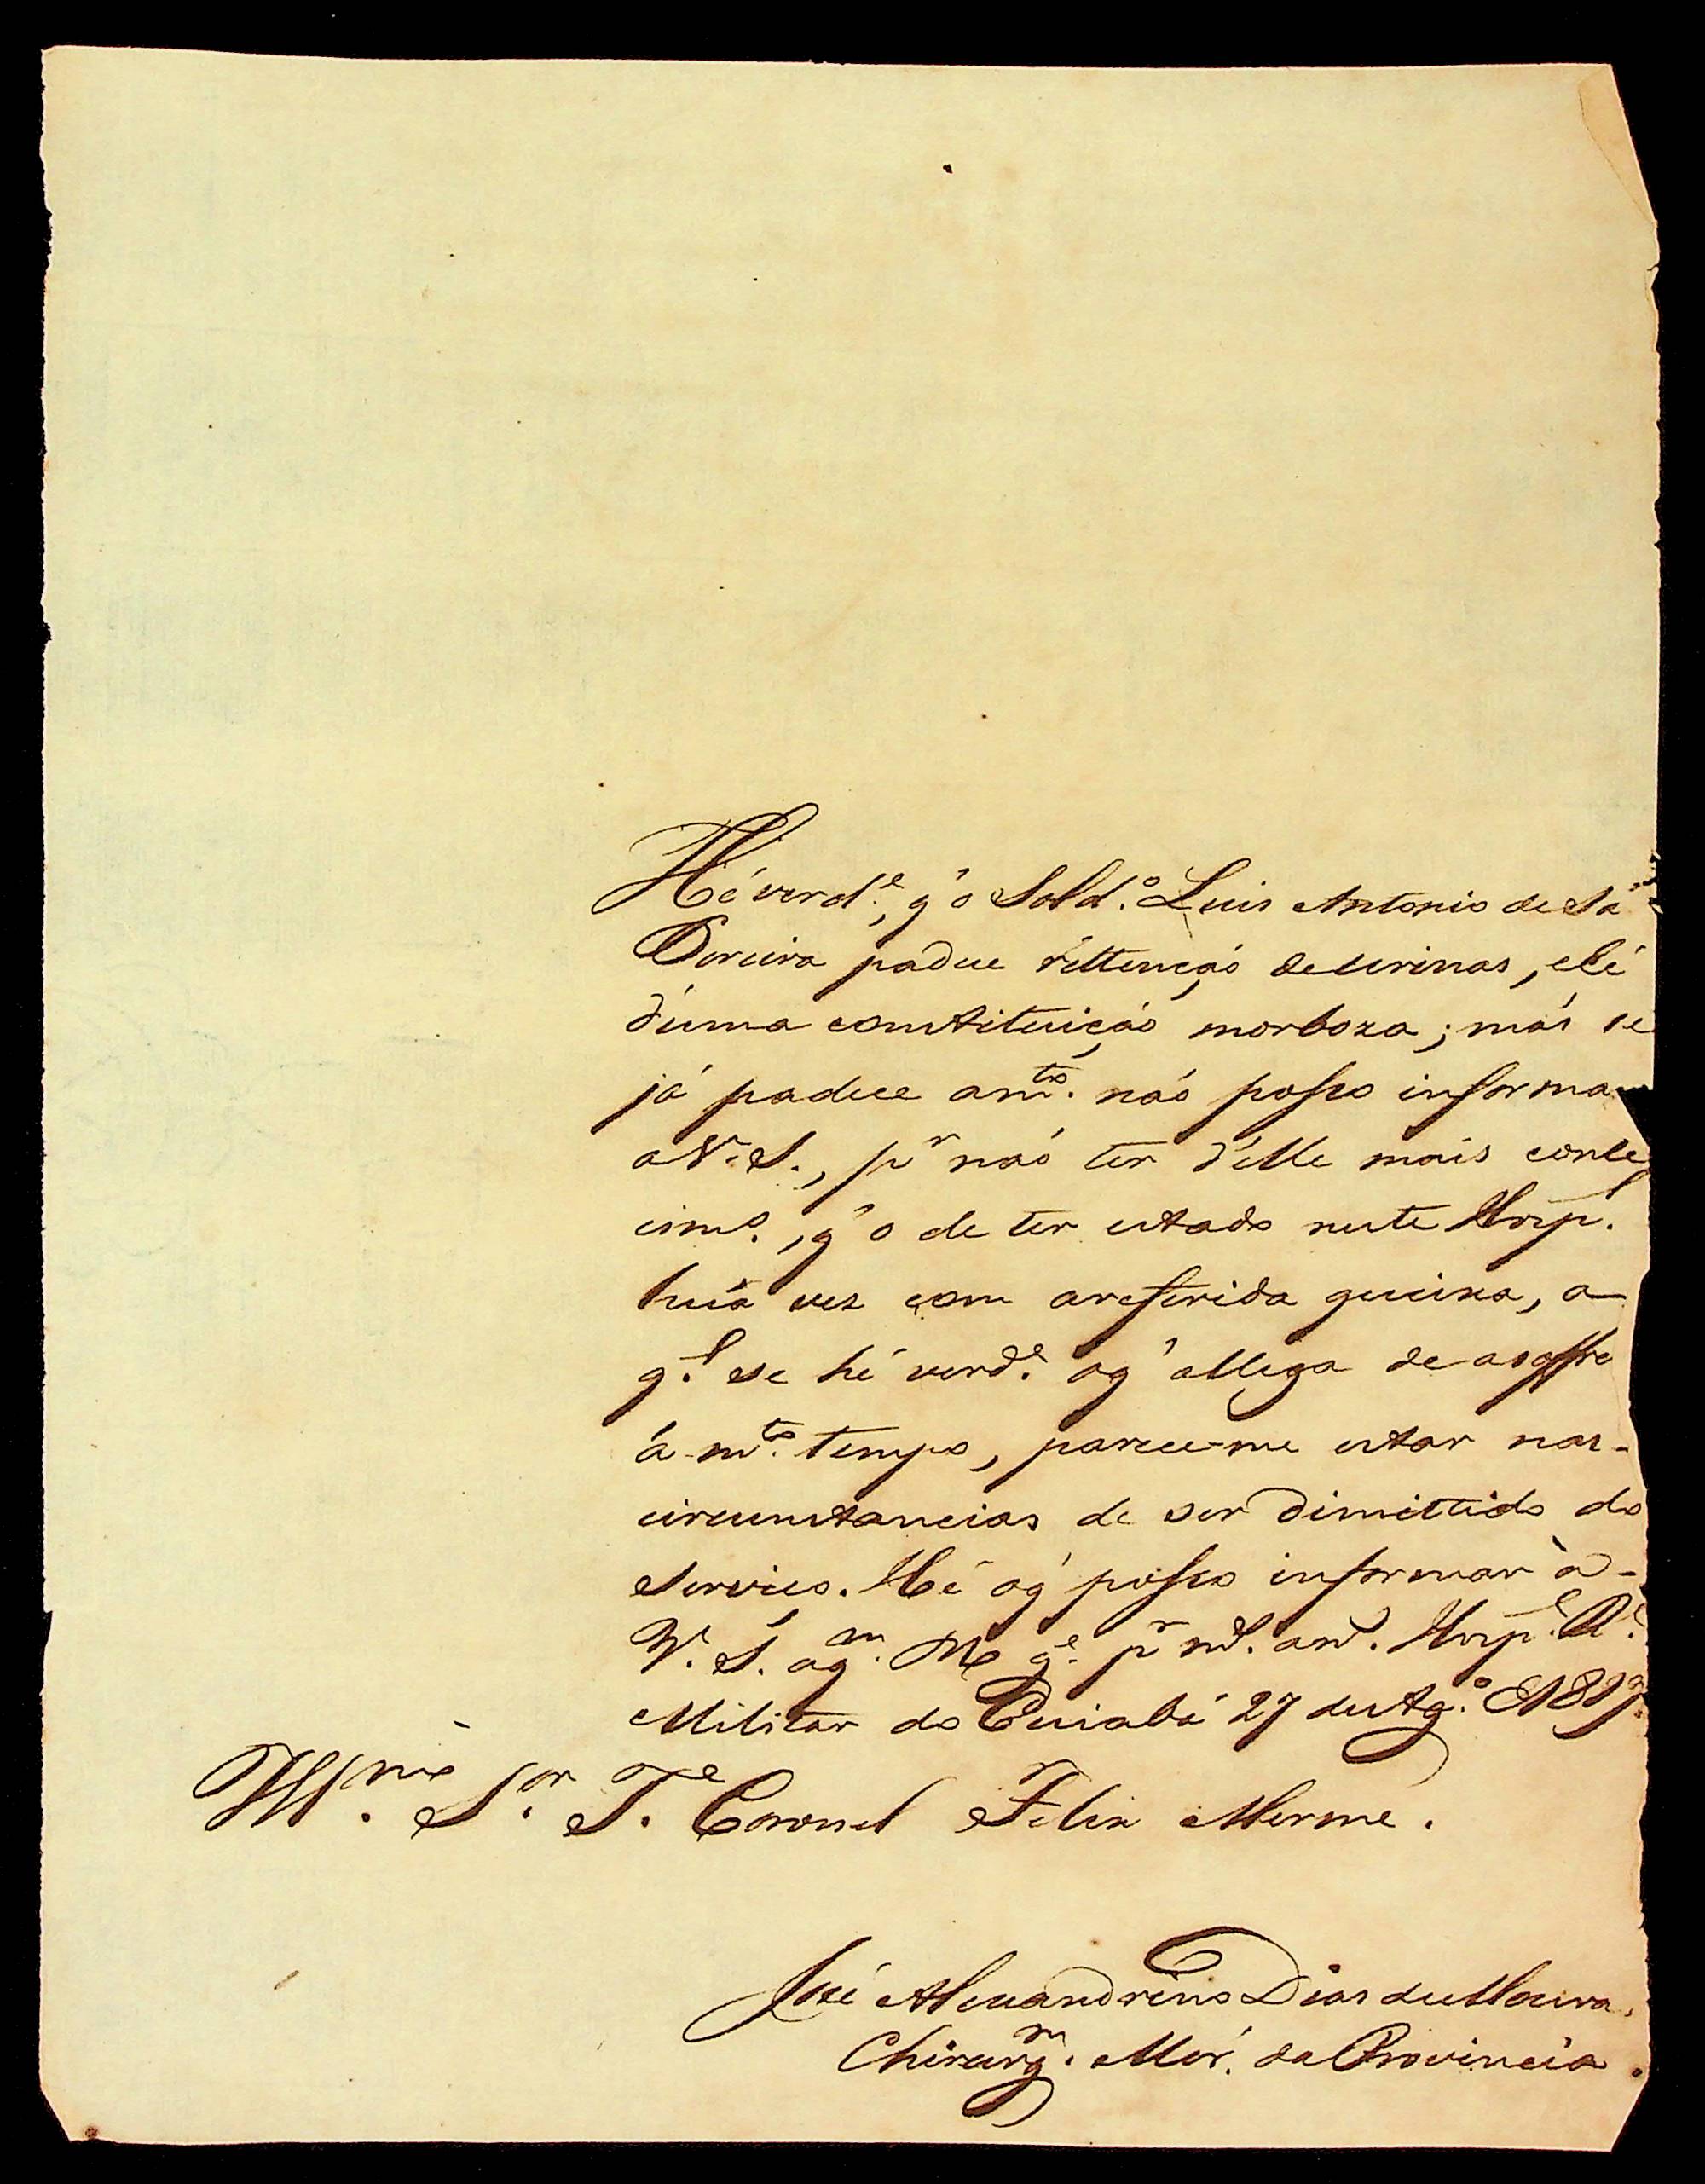 Hé verd.e, q' o Sold.o Luis Antonio de Sá
Pereira padece rettenção de urinas, e hé
d'uma constituição morboza; más se
já padece a m.tos não posso informar
a V. S., p.r não ter d'elle mais conhe
cim.o, q' o de ter estado neste Hosp.l
huã vez com a referida queixa, a
q.l se hé verd.e o q' allega de a soffre
á m.to tempo, parece-me estar nas
circunstancias de ser dimittido do
Serviço. Hé o q' posso informar à
V. S. a q.m D.s g.e p.r m.s an.s Hosp.l R.l
Militar do Cuiabá 27 de Ag.o
Ill.mo S.or T.e Coronel Felix Merme.
José Alexandrino Dias de Moura.
Chirurg.m Mór. da Provincia.